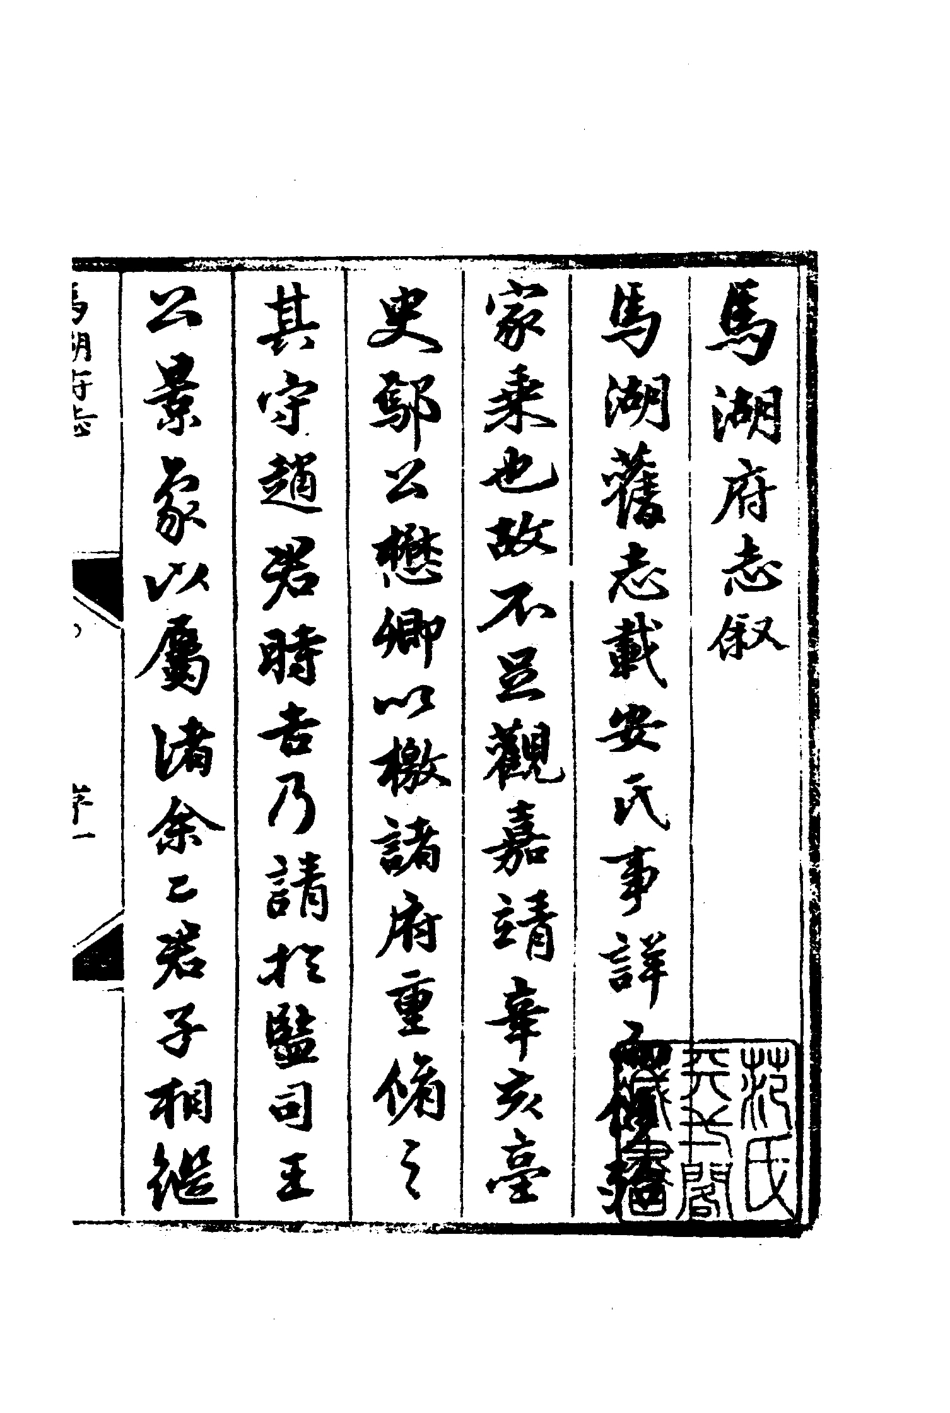 馬湖府志叙
馬湖舊志載安氏事詳而
家乘也故不足觀嘉靖辛亥臺
史鄢公懋卿以檄諸府重脩之
其守趙君時吉乃請於監司王
公景象以屬諸余二君子相繼
馬湖府志
序一
范氏
天弌閣
藏書